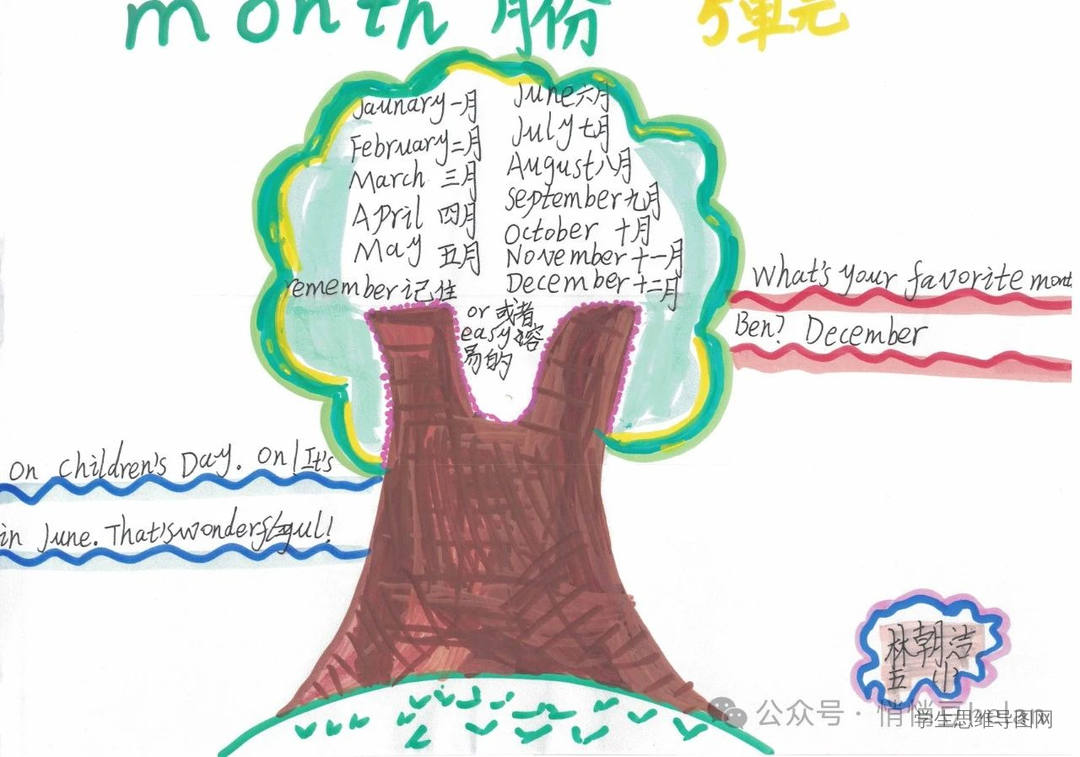 month 月份 5單元
Jaunary 一月
February 二月
March 三月
April 四月
May 五月
remember 记住
June 六月
July 七月
August 八月
September 九月
October 十月
November 十一月
December 十二月
or 或者
easy 容
易的
What's your favorite mont
Ben? December
on Children's Day. On It's
in June. That's
林朝洁
五 小
公众号·悄悄
学生思维导图网